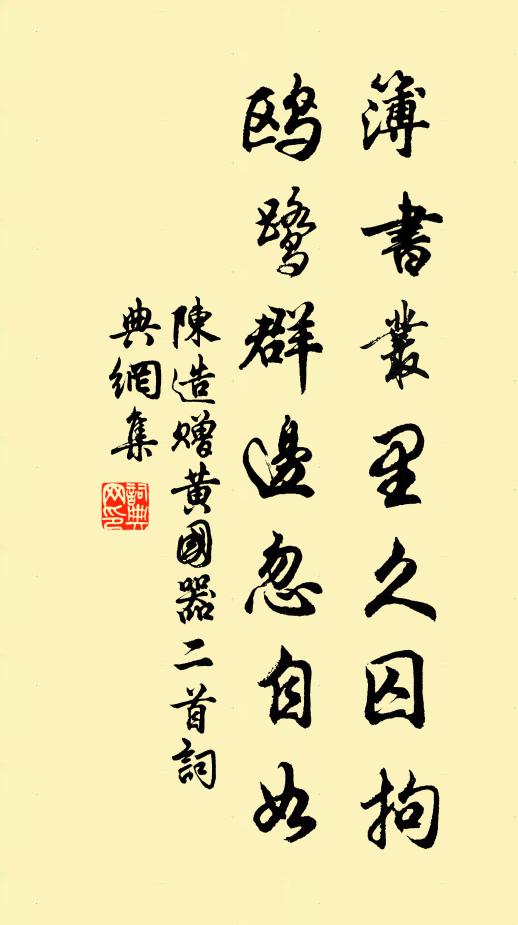 簿書叢里久囚拘
鸥鹭群邊忽自如
陳造赠黃國器二首詞
典網集
詞典
网印